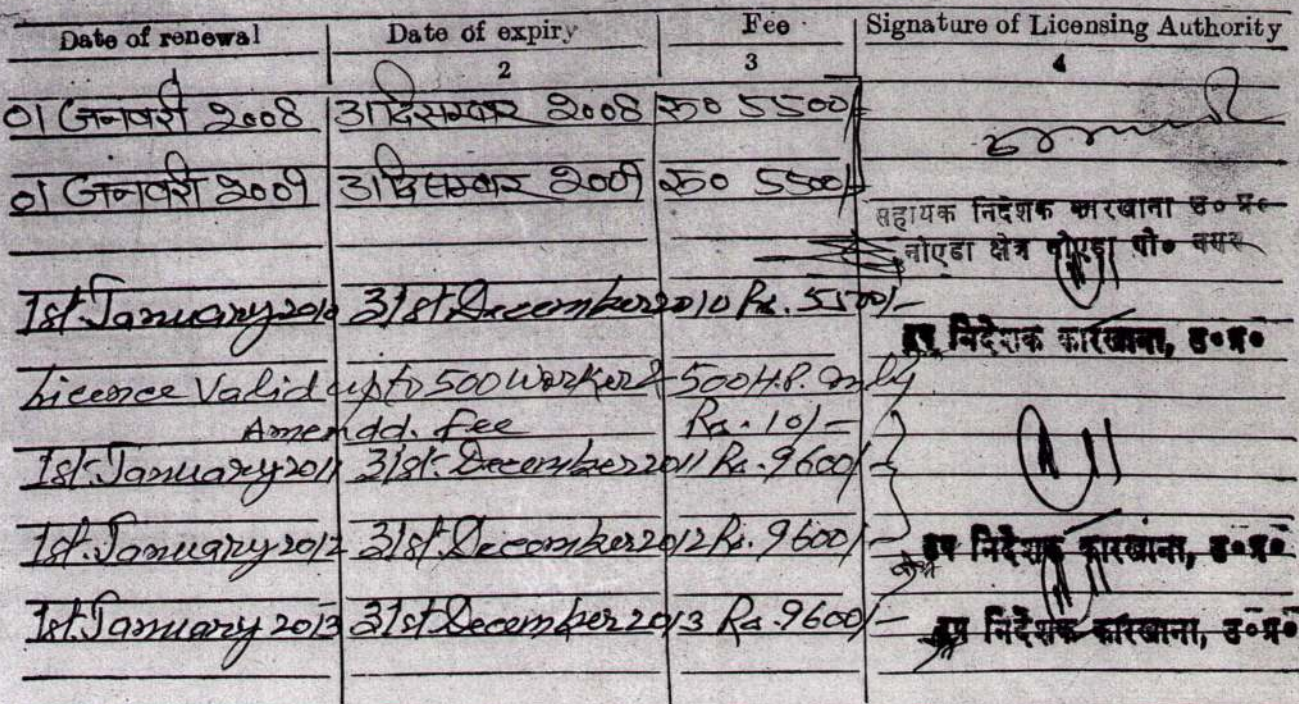 Date of renewal Date of expiry Fee Signature of Licensing Authority
1 2 3 4
01 जनवरी 2008 31 दिसम्बर 2008 रू० 5500/-
01 जनवरी 2009 31 दिसम्बर 2009 रू० 5500/-
सहायक निदेशक कारखाना उ० प्र०
नोएडा क्षेत्र नोएडा गौ० नगर
1st January 2010 31st December 2010 Rs. 5500/-
उप निदेशक कारखाना, उ०प्र०
Licence Valid upto 500 Worker & 500 H.P. only
Amendd. fee Rs. 10/-
1st January 2011 31st December 2011 Rs. 9600/-
1st January 2012 31st December 2012 Rs. 9600/-
उप निदेशक कारखाना, उ०प्र०
1st January 2013 31st December 2013 Rs. 9600/-
उप निदेशक कारखाना, उ०प्र०